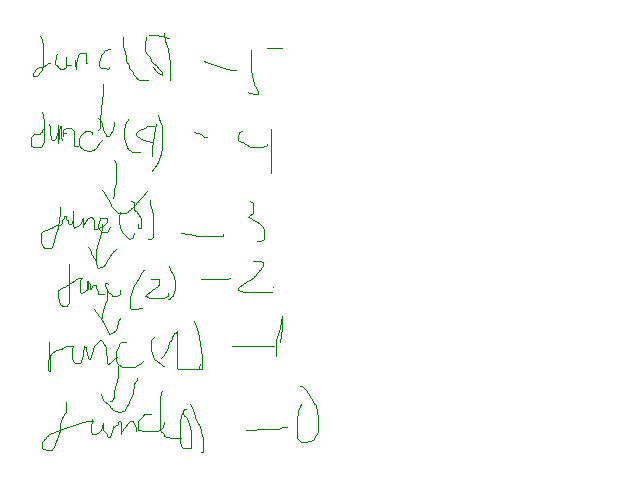 func(5) - 5
func(4) - 4
func(3) - 3
func(2) - 2
func(1) - 1
func(0) - 0